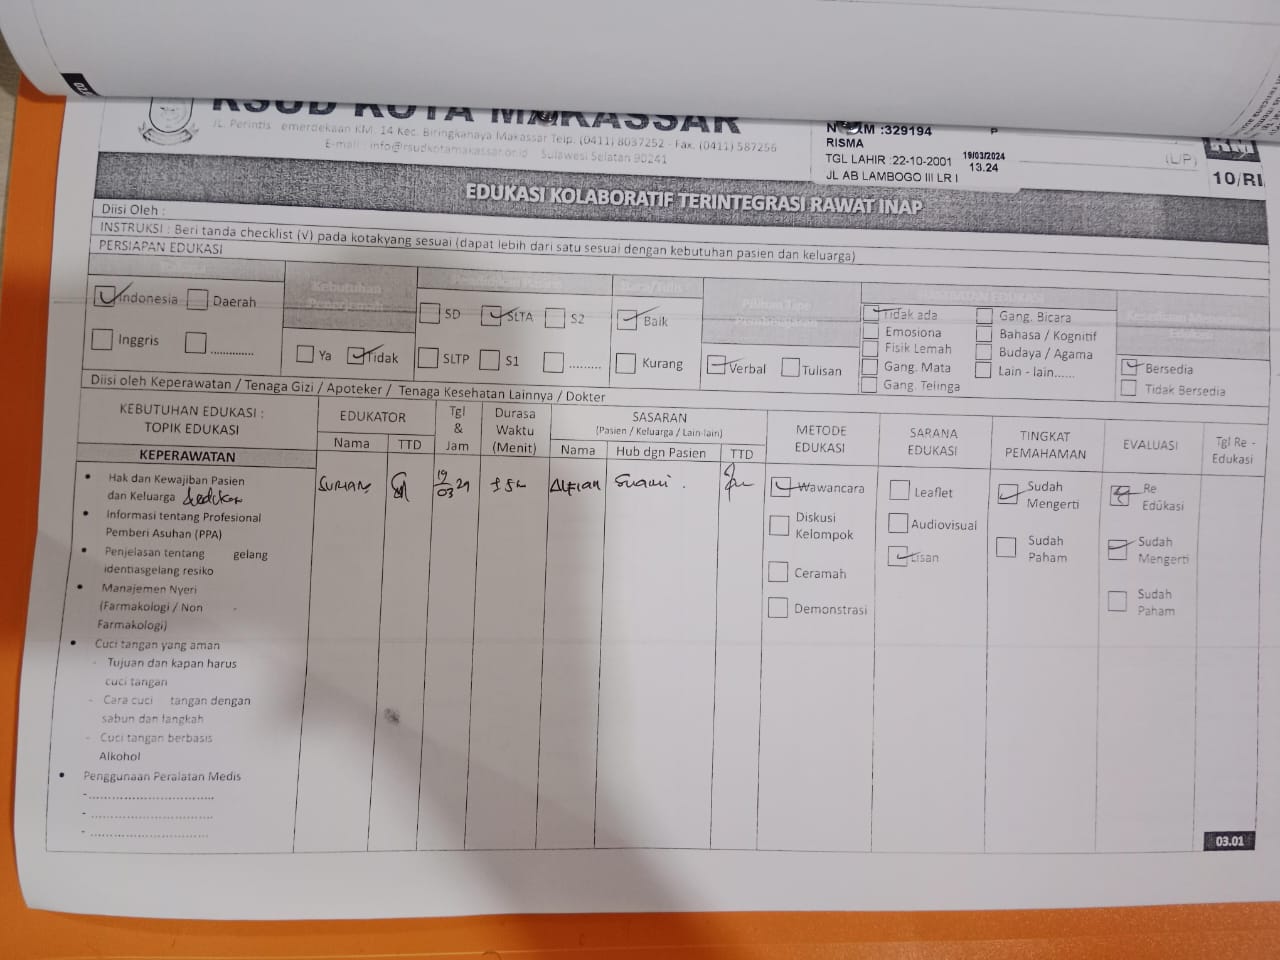 RSUD KOTA MAKASSAR
JL. Perintis emerdekaan KM. 14 Kec. Biringkanaya Makassar Telp. (0411) 8037252 - Fax. (0411) 587256
E-mail info@rsudkotamakassar.or.id Sulawesi Selatan 90241
:329194 P
RISMA
TGL LAHIR :22-10-2001 19/03/2024 13.24
JL AB LAMBOGO III LR I
(L/P)
RM
10/RI
EDUKASI KOLABORATIF TERINTEGRASI RAWAT INAP
Diisi Oleh :
INSTRUKSI : Beri tanda checklist (√) pada kotakyang sesuai (dapat lebih dari satu sesuai dengan kebutuhan pasien dan keluarga)
PERSIAPAN EDUKASI
Indonesia Daerah
Inggris ............
Kebutuhan
Ya Tidak
SD SLTA S2
SLTP S1 .........
Baik
Kurang
Verbal Tulisan
Tidak ada Gang. Bicara
Emosiona Bahasa / Kognitif
Fisik Lemah Budaya / Agama
Gang. Mata Lain - lain......
Gang. Telinga
Bersedia
Tidak Bersedia
Diisi oleh Keperawatan / Tenaga Gizi / Apoteker / Tenaga Kesehatan Lainnya / Dokter
KEBUTUHAN EDUKASI :
TOPIK EDUKASI
EDUKATOR
Nama TTD
Tgl
&
Jam
Durasa
Waktu
(Menit)
SASARAN
(Pasien / Keluarga / Lain-lain)
Nama Hub dgn Pasien TTD
METODE
EDUKASI
SARANA
EDUKASI
TINGKAT
PEMAHAMAN
EVALUASI
Tgl Re -
Edukasi
KEPERAWATAN
• Hak dan Kewajiban Pasien
dan Keluarga
• Informasi tentang Profesional
Pemberi Asuhan (PPA)
• Penjelasan tentang gelang
identiasgelang resiko
• Manajemen Nyeri
(Farmakologi / Non
Farmakologi)
• Cuci tangan yang aman
- Tujuan dan kapan harus
cuci tangan
- Cara cuci tangan dengan
sabun dan langkah
- Cuci tangan berbasis
Alkohol
• Penggunaan Peralatan Medis
-................................
- ...............................
- ..............................
19/03 24
Alfian Suami
Wawancara
Diskusi
Kelompok
Ceramah
Demonstrasi
Leaflet
Audiovisual
Lisan
Sudah
Mengerti
Sudah
Paham
Re
Edukasi
Sudah
Mengerti
Sudah
Paham
03.01